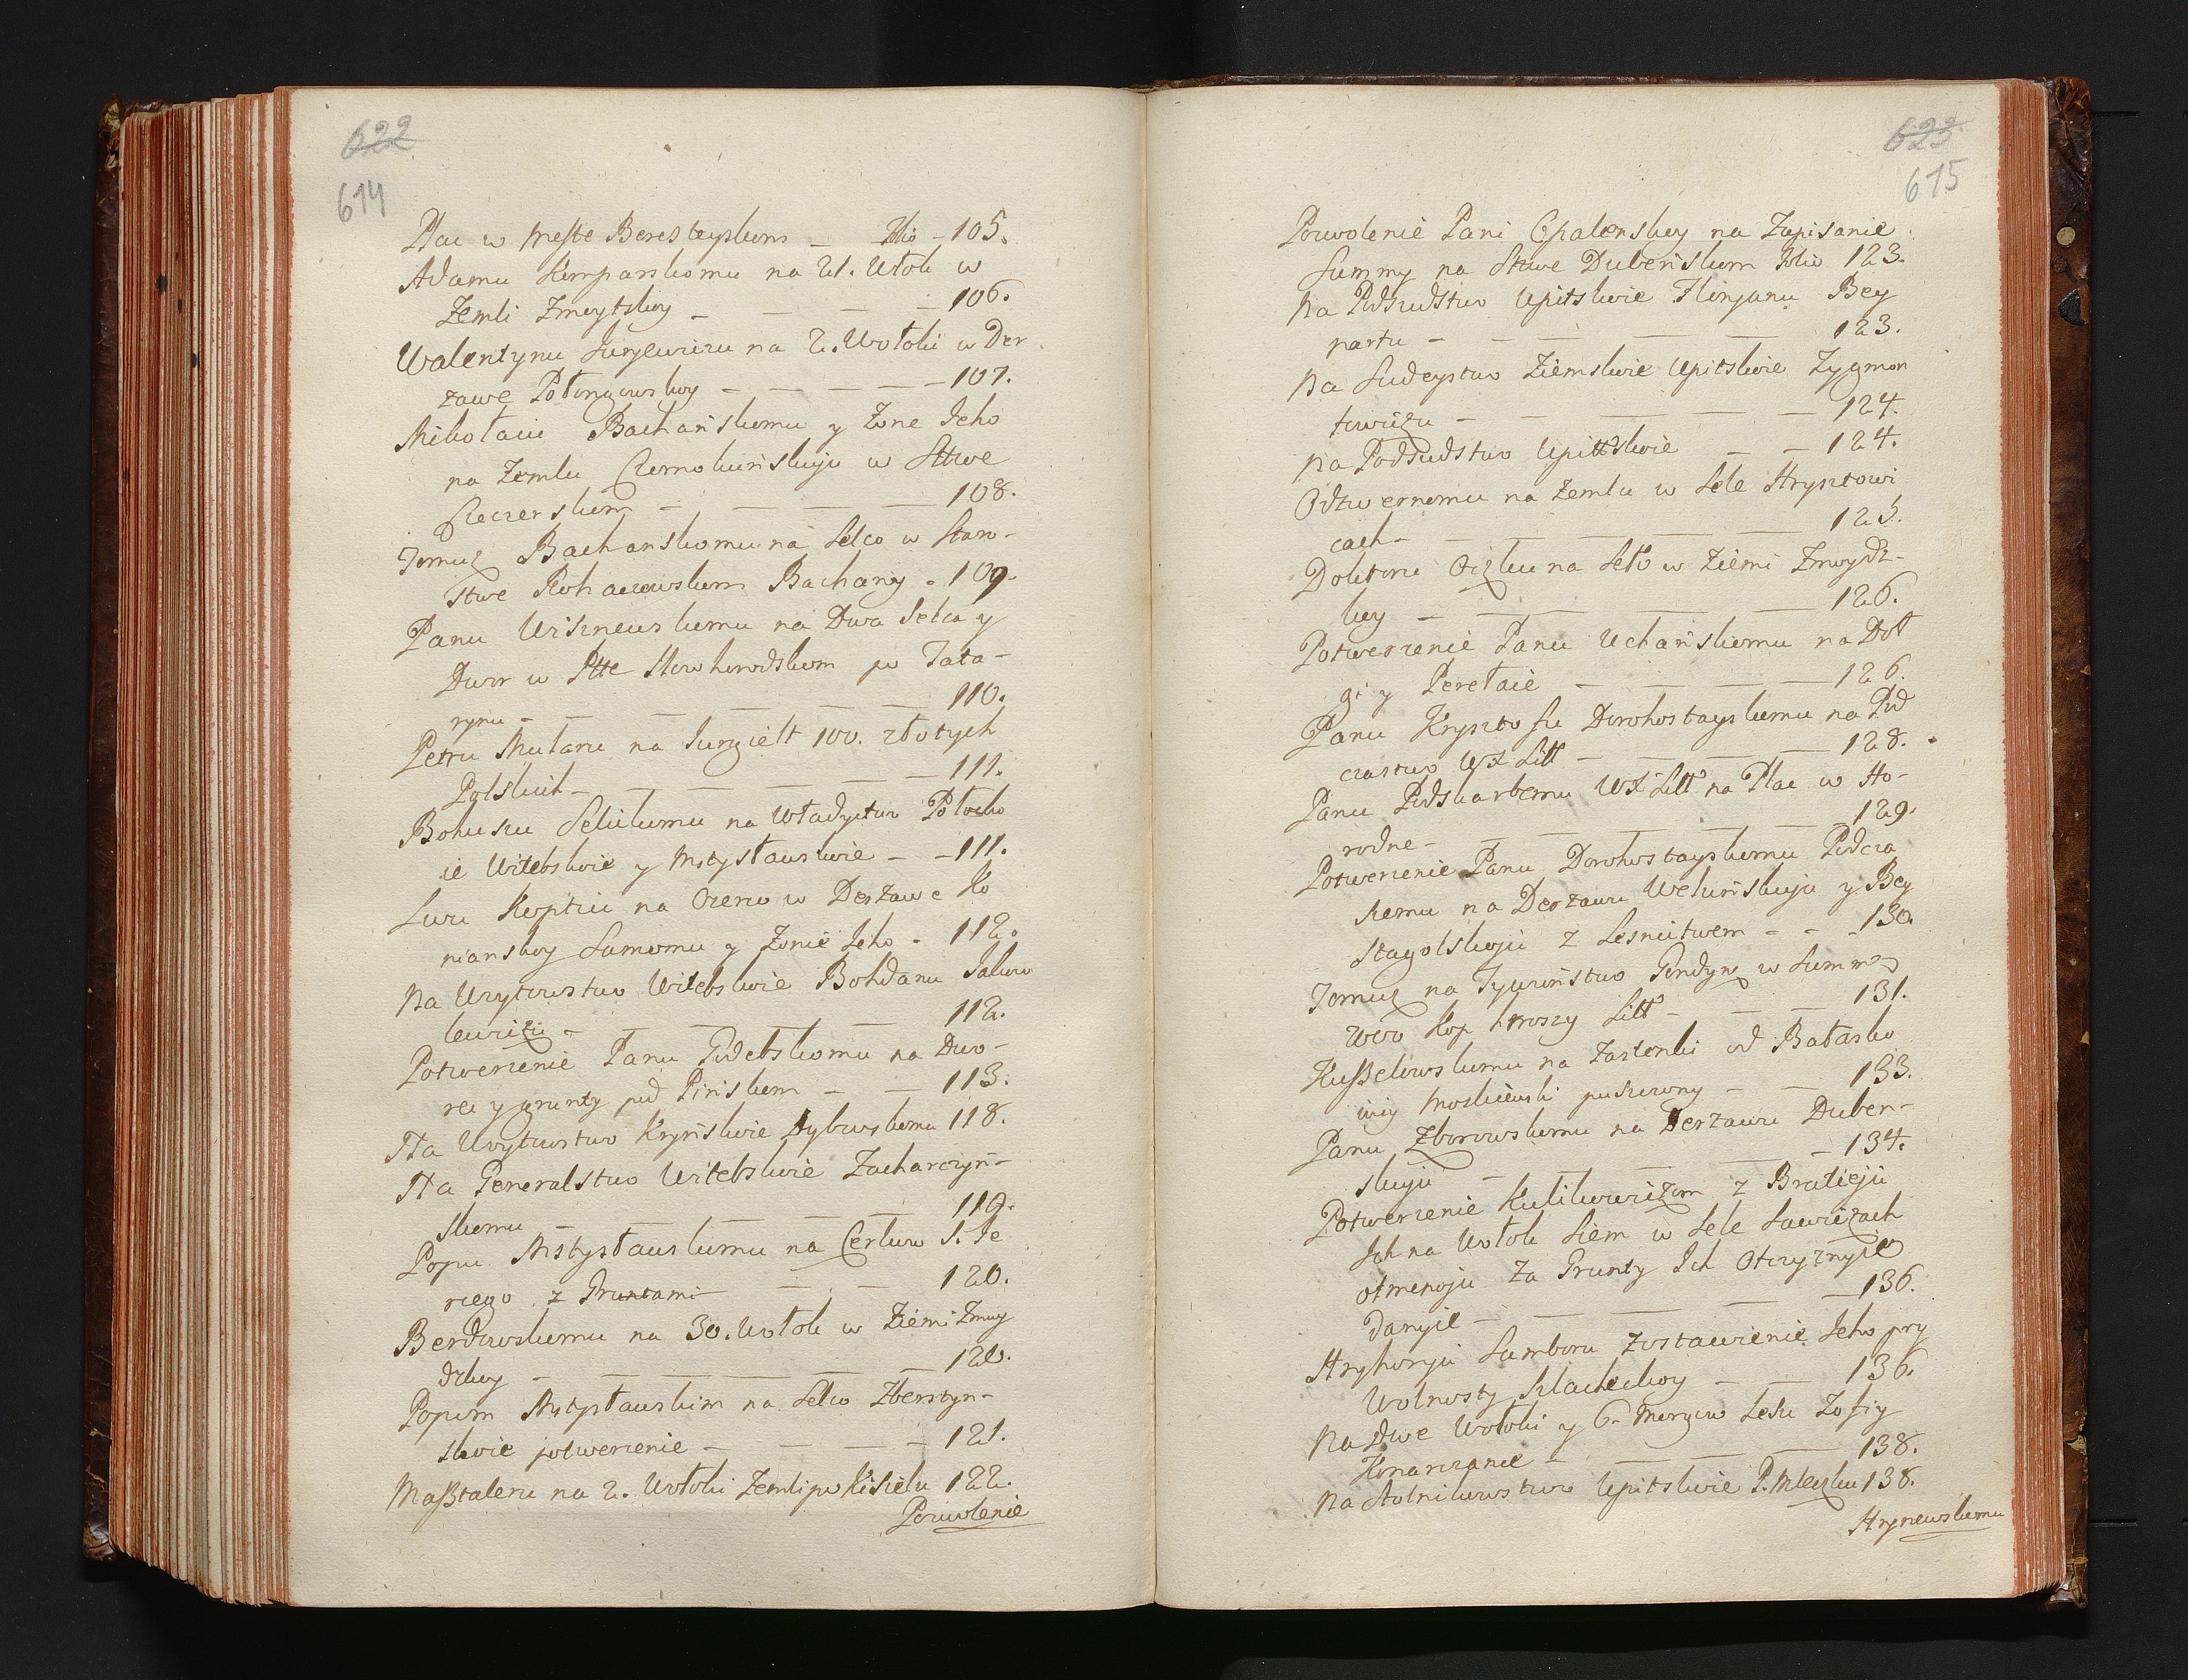 622
614
Plac w Meste Beresteyskom — Folio - 105.
Adamu Kemparskomu na 21. Włok w
Zemli Zmoytskoy — — — 106.
Walentynu Jurjewiczu na 2. Wołoki w Der
zawe Połongowskoy — — — — 107.
Mikołaiu Bachańskomu y Zone Jeho
na Zemlu Czernokuńskuju w Sttwe
Czeczerskom — — — — 108.
Tomuż Bachanskomu na Selco w Staro-
stwe Rohaczewskom Bachany - 109.
Panu Wiszneuskomu na Dwa Selca y
Dwor w Ptte Nowhorodskom po Tata-
rynu — — — — — 110.
Petru Mularu na Jurgielt 100. złotych
Polskich — — — — — 111.
Bohuszu Selickomu na Władyctwo Połocko
ie Witebskoie y Mstysławskoie — — 111.
Lwu Koptiu na Ozero w Derżawe Ko
nianskoy Samomu y Żonie Jeho - 112.
Na Wozytowstwo Witebskoie Bohdanu Jakuw
lewiczu — — — — 112.
Potwerzenie Panu Hulebskomu na Dwo-
rec y grunty pod Pińskom — — 113.
Na Woytowstwo Kryńskoie Dybowskomu 118.
Na Generalstwo Witebskoie Zacharczyń-
skomu — — — — 119.
Popu Mstysławskomu na Cerkow S. Je
rzego z Gruntami — — — 120.
Berdowskomu na 30. Wołok w Ziemi Zmoy
dzkoy — — — — 120.
Popom Mstysławskim na Selco Zberstyn-
skoie potwerzenie — — — — 121.
Maßtaleru na 2. Wołoki Zemli po Kisielu 122.
Pozwolenie
623
615
Pozwolenie Pani Opalenskoy na Zapisanie
Summy na Sttwe Dubeńskom Folio 123.
Na Podsudstwo Upitskoie Florjanu Bey
nartu — — — — — 123.
Na Sudeystwo Ziemskoie Upitskoie Zygmon
towiczu — — — — — 124.
Na Podsudstwo Upittskoie — — 124.
Odzwernomu na Zemlu w Sele Hrysztowi
cach — — — — — 125.
Doktoru Oczku na Seło w Ziemi Zmoydz-
koy — — — — 126.
Potwerzenie Panu Uchańskomu na Doł
gi y Perełaie — — — — 126.
Panu Krysztofu Dorohostayskomu na Pod
czastwo WX Litt — — — — 128.
Panu Podskarbemu WX Litto na Plac w Ho-
rodne — — — — — 129.
Potwerzenie Panu Dorohostayskomu Podcza
szemu na Derżawu Weluńskuju y Bey
stagolskuju z Lesnitwem — — — 130.
Tomuż na Tywuństwo Gondyn w Summo
Kop hroszy Litto — — — 131.
Kußelowskomu na Zastenki od Bałasko
Moskiewski puszczony — — 133.
Panu Zborowskomu na Derżawu Duben-
skuju — — — — — 134.
Potwerzenie Kulikowiczom z Bratieju
Ich na Wołok Siem w Sele Sawiczach
otmenoju za Grunty Ich Otczyznyie
danyie — — — — 136.
Hryhoryu Samboru zostawienie Jeho pry
Wolnosty Szlacheckoy — — 136.
Na Dwe Wołoki y 6. Morgow Lesu Zofiy
Konarczance — — — — 138.
Na Stolnikowstwo Upitskoie P. Mleczku 138.
Hrynewskomu